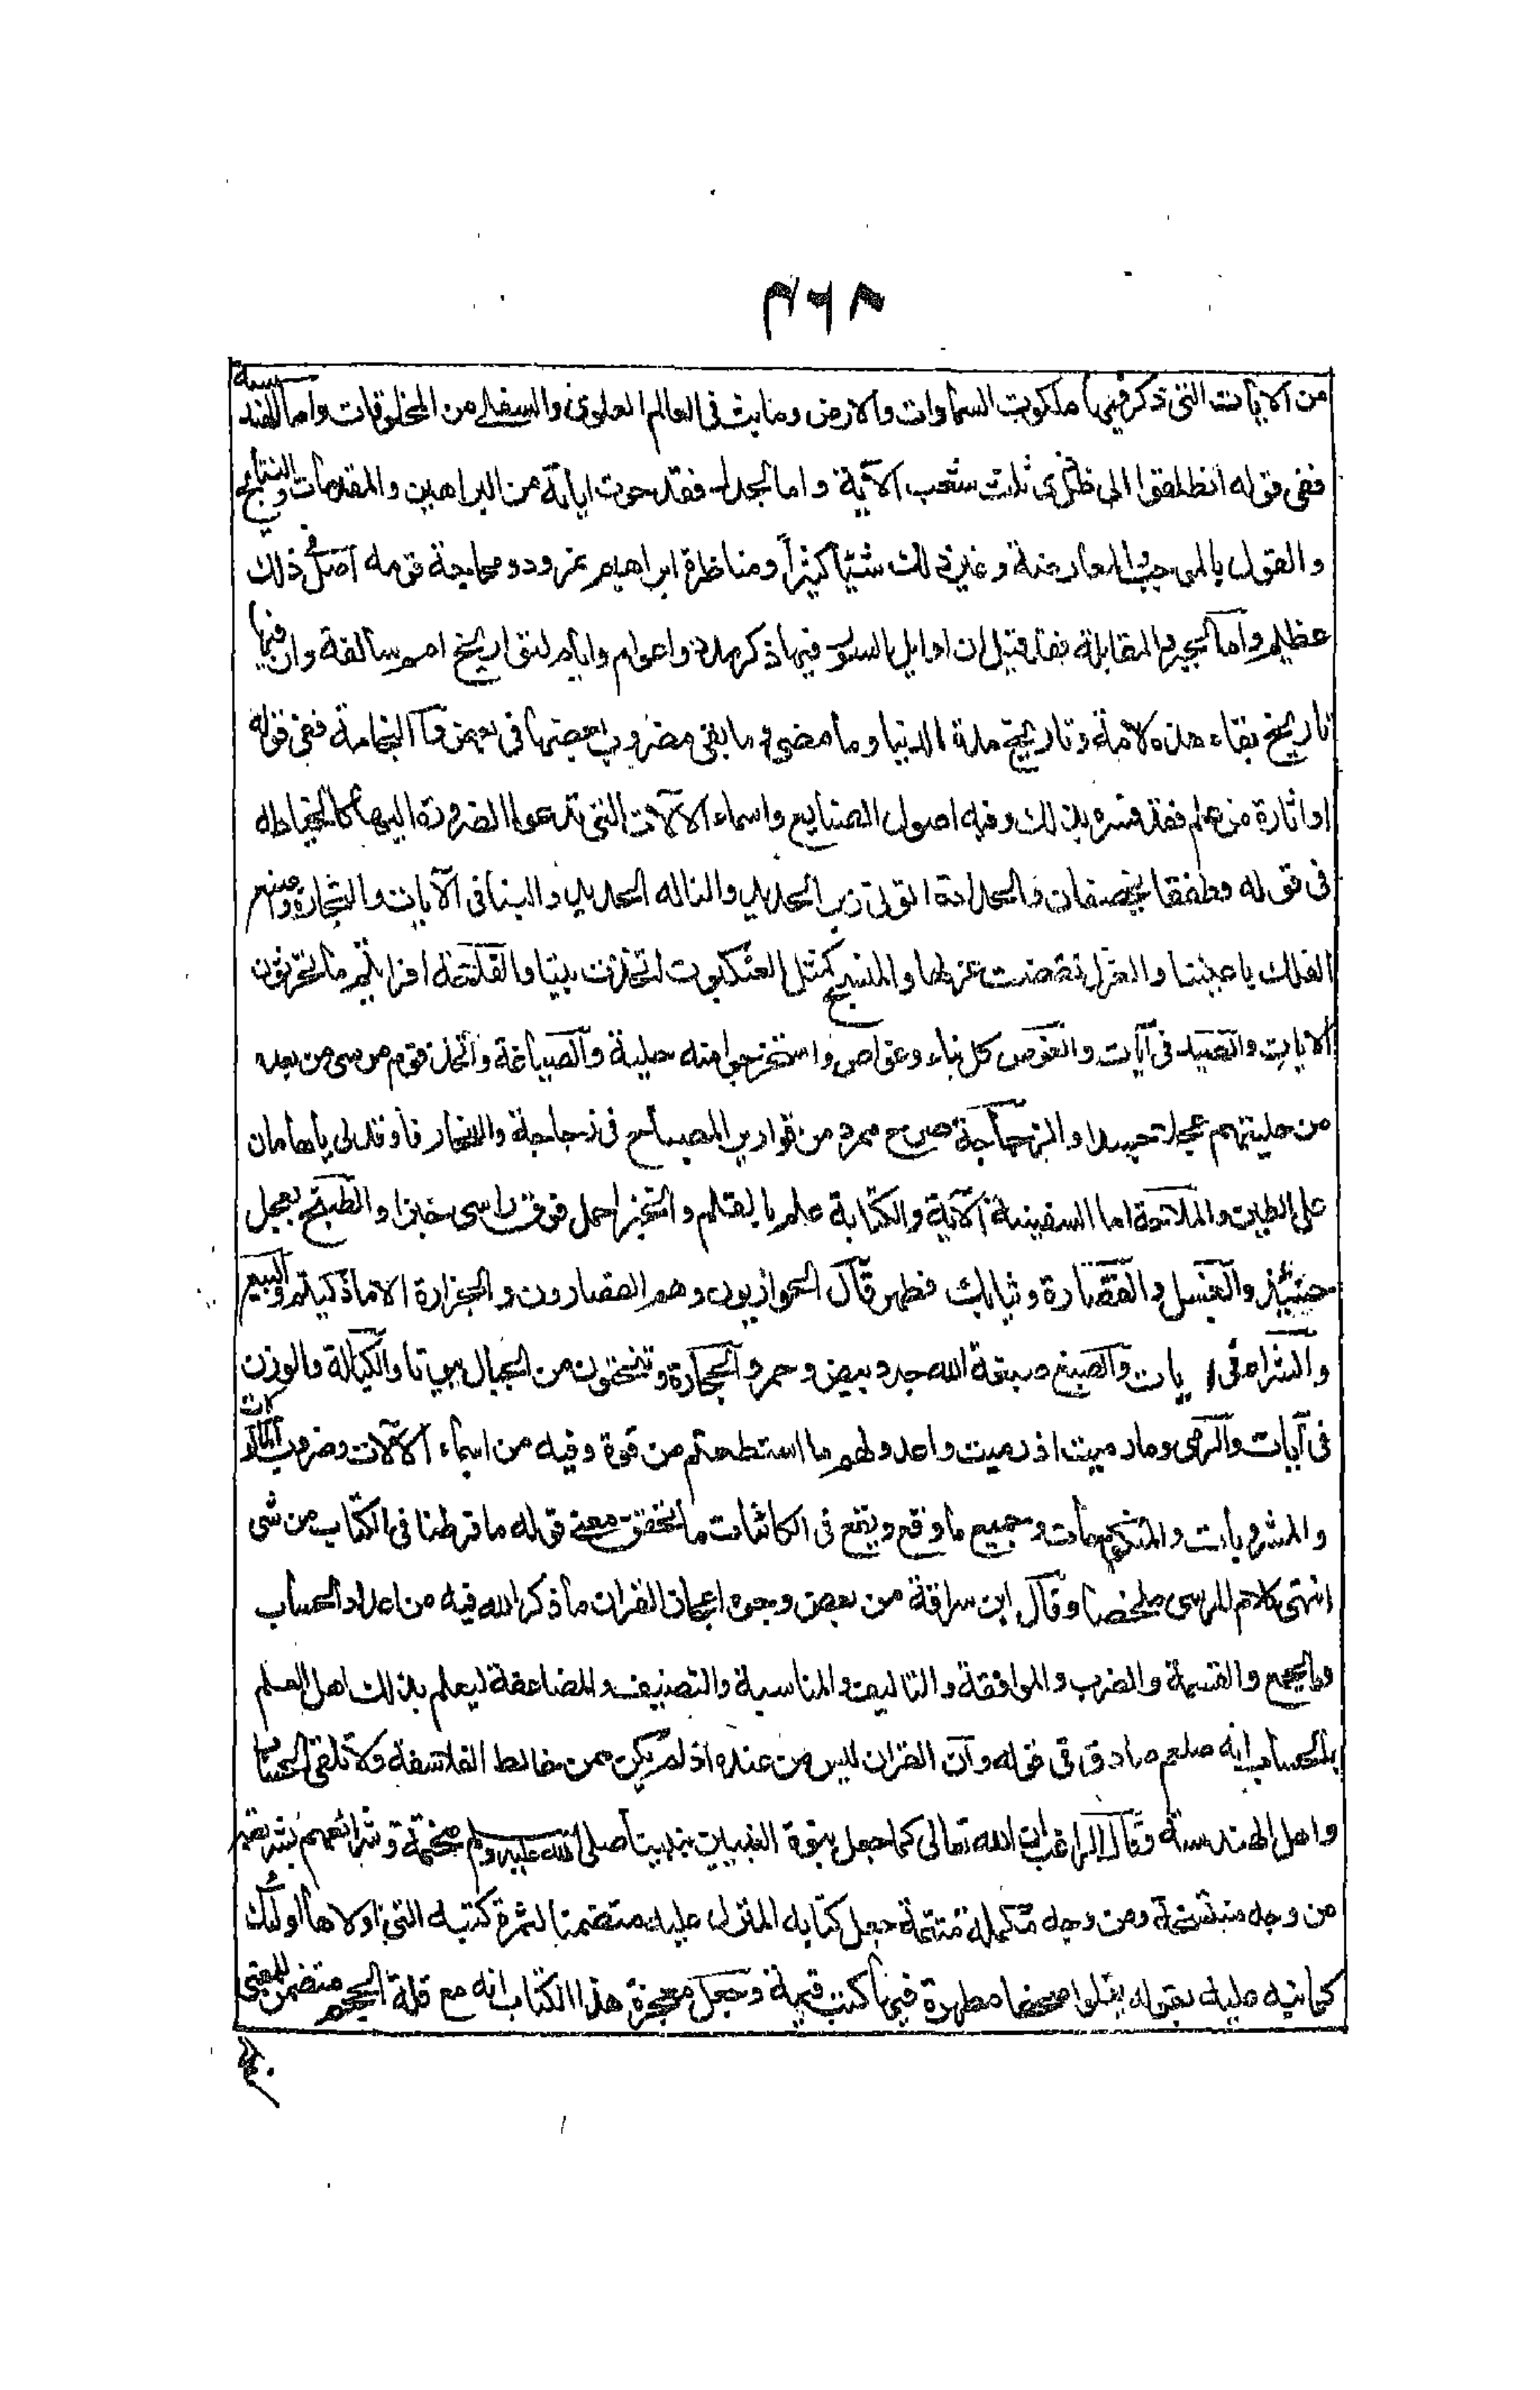 ٣٦٨
من الآيات التى ذكر فيها ملكوت السماوات والارض ومابث فى العالم العلوى والسفلے من المخلوقات واما الهندسة
ففى قوله انطلقوا الى ظل ذى ثلث شعب الآية واما الجدل فقد حوت اياته من البراهين والمقدمات والنتايج
والقول بالموجب والمعارضة وغير ذلك شيًا كثيراً ومناظرة ابراهيم نمرود ومحاجة قومه اصل فى ذلك
عظيم واما الجبر والمقابلة فقد قيل ان اوايل السور فيها ذكر مدد واعوام وايام لتواريخ امم سالفة وان فيها
تاريخ بقاء هذه الامة وتاريخ مدة الدنيا وما مضى وما بقى مضروب بعضها فى بعض وآ النجامة ففى قوله
او اثارة من علم فقد فسره بذلك وفيه اصول الصنايع واسماء الآلات التى تدعوا الضرورة اليها كالخياطه
فى قوله وطفقا يخصفان والحدادة اتونى زبر الحديد والناله الحديد والبنا فى الآيات والنجارة واصنع
الفلك باعيننا والغزل نقضت غزلها والنسج كمثل العنكبوت اتخذت بيتا والفلاحة افرايتم ما تحرثون
الايات والصيد فى آيات والغوص كل بناء وغواص واستخرجوا منه حلية والصياغة واتخذ قوم موسى من بعده
من حليهم عجلا جسدا والزجاجة صرح ممرد من قوارير المصباح فى زجاجة والفخار فاوقد لى ياهامان
على الطين والملاحة اما السفينة الآية والكتابة علم بالقلم والخبز احمل فوق راسى خبزا والطبخ بعجل
حنيذ والغسل والقصارة وثيابك فطهر قال الحواريون وهم القصارون والجزارة الا ما ذكيتم والبيع
والشراء فى ايات والصبغ صبغة الله جدد بيض وحمر والحجارة وتنحتون من الجبال بيوتا والكيالة والوزن
فى آيات والرمى وما رميت اذ رميت واعدوا لهم ما استطعتم من قوة وفيه من اسماء الآلات وضروب الماكولات
والمشروبات والمنكوحات وجميع ما وقع ويقع فى الكائنات ما يحقق معنى قوله ما فرطنا فى الكتاب من شى
انتهى كلام المرسى ملخصا وقال ابن سراقة من بعض وجوه اعجاز القران ما ذكر الله فيه من اعداد الحساب
والجمع والقسمة والضرب والموافقة والتاليف والمناسبة والتصنيف والمضاعفة ليعلم بذلك اهل العلم
بالحساب انه صلعم صادق فى قوله وان القران ليس من عنده اذ لم يكن ممن خالط الفلاسفة ولا تلقى الحساب
واهل الهندسة وقال الراغب ان الله تعالى كما جعل نبوة النبيين بنبينا صلى الله عليه وسلم مختتمة وشرائعهم بشريعته
من وجه منتسخة ومن وجه مكملة متممة جعل كتابه المنزل عليه متضمنا لثمرة كتبه التى اولاها اولئك
كما نبه عليه بقوله يتلوا صحفا مطهرة فيها كتب قيمة وجعل معجزة هذا الكتاب انه مع قلة الحجم متضمن للمعنى